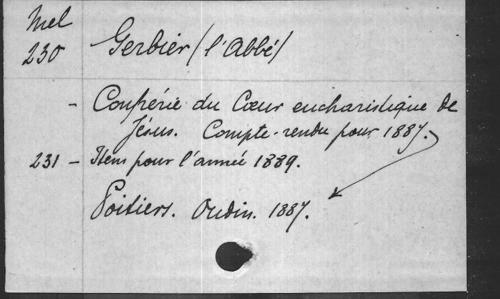 Mel
230 Gerbier (l'Abbé)
- Confrérie du Cœur eucharistique de
Jésus. Compte-rendu pour 1887.
231 - Item pour l'année 1889.
Poitiers. Oudin. 1887.